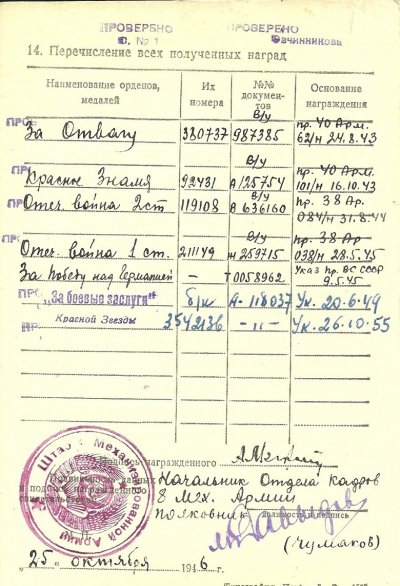 ПРОВЕРЕНО ПРОВЕРЕНО
О. № 1 Овчинникова
14. Перечисление всех полученных наград
Наименование орденов, медалей Их номера №№ документов Основание награждения
За Отвагу 380737 в/у 987385 пр. 40 Арм. 62/н 24.8.43
Красное Знамя 92431 в/у А/125754 пр. 40 Арм. 101/н 16.10.43
Отеч. война 2ст 119108 в/у В 636160 пр. 38 Ар. 084/н 31.8.44
Отеч. война 1 ст. 211149 в/у 259715 пр. 38 Ар 038/н 28.5.45
За Победу над Германией – Т 0058962 Указ През. ВС СССР 9.5.45
„За боевые заслуги" б/н А-118037 Ук. 20-6-49
Красной Звезды 3542136 -"- Ук. 26-10-55
Подпись награжденного
Правильность данных
и подпись награжденного
свидетельствую
Штаб Механизированной Армии
Начальник Отдела Кадров
8 Мех. Армии
полковник
должность и подпись
(Чумаков)
25 октября 1946 г.